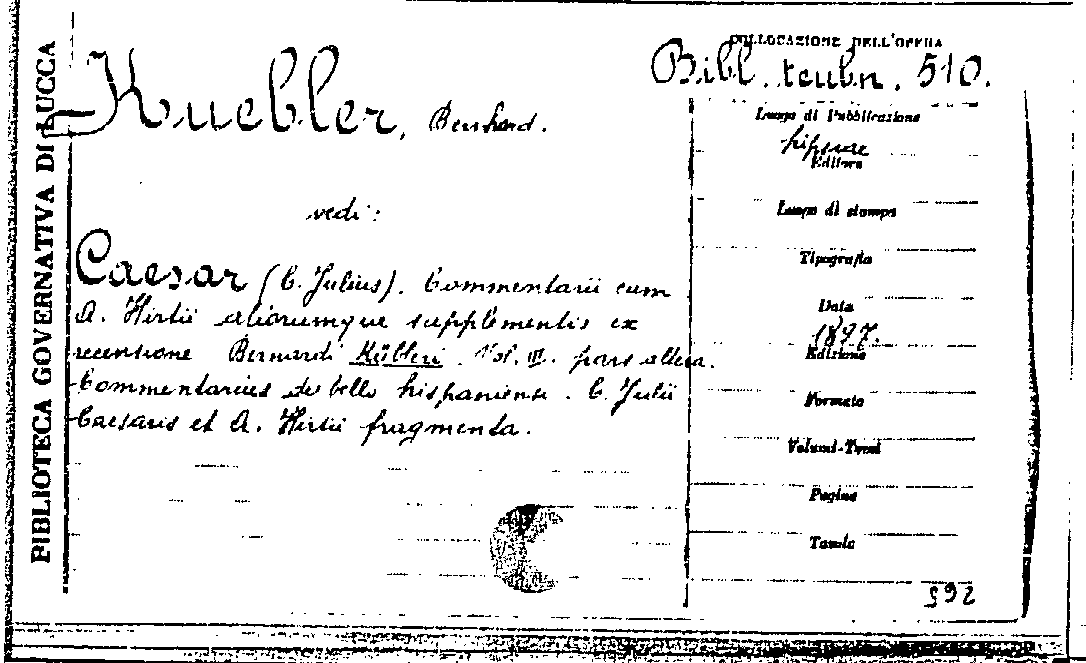 BIBLIOTECA GOVERNATIVA DI LUCCA
Kuebler, Bernhard.
vedi:
Caesar (C. Julius). Commentarii cum
A. Hirtii aliorumque supplementis ex
recensione Bernardi Kübleri. Vol. III. pars altera.
Commentarius de bello hispaniensi. C. Julii
Caesaris et A. Hirtii fragmenta.
COLLOCAZIONE DELL'OPERA
Bibl. teubn. 510.
Luogo di Pubblicazione
Lipsiae
Editore
Luogo di stampa
Tipografia
Data
1897.
Edizione
Formato
Volumi-Tomi
Pagine
Tavole
592